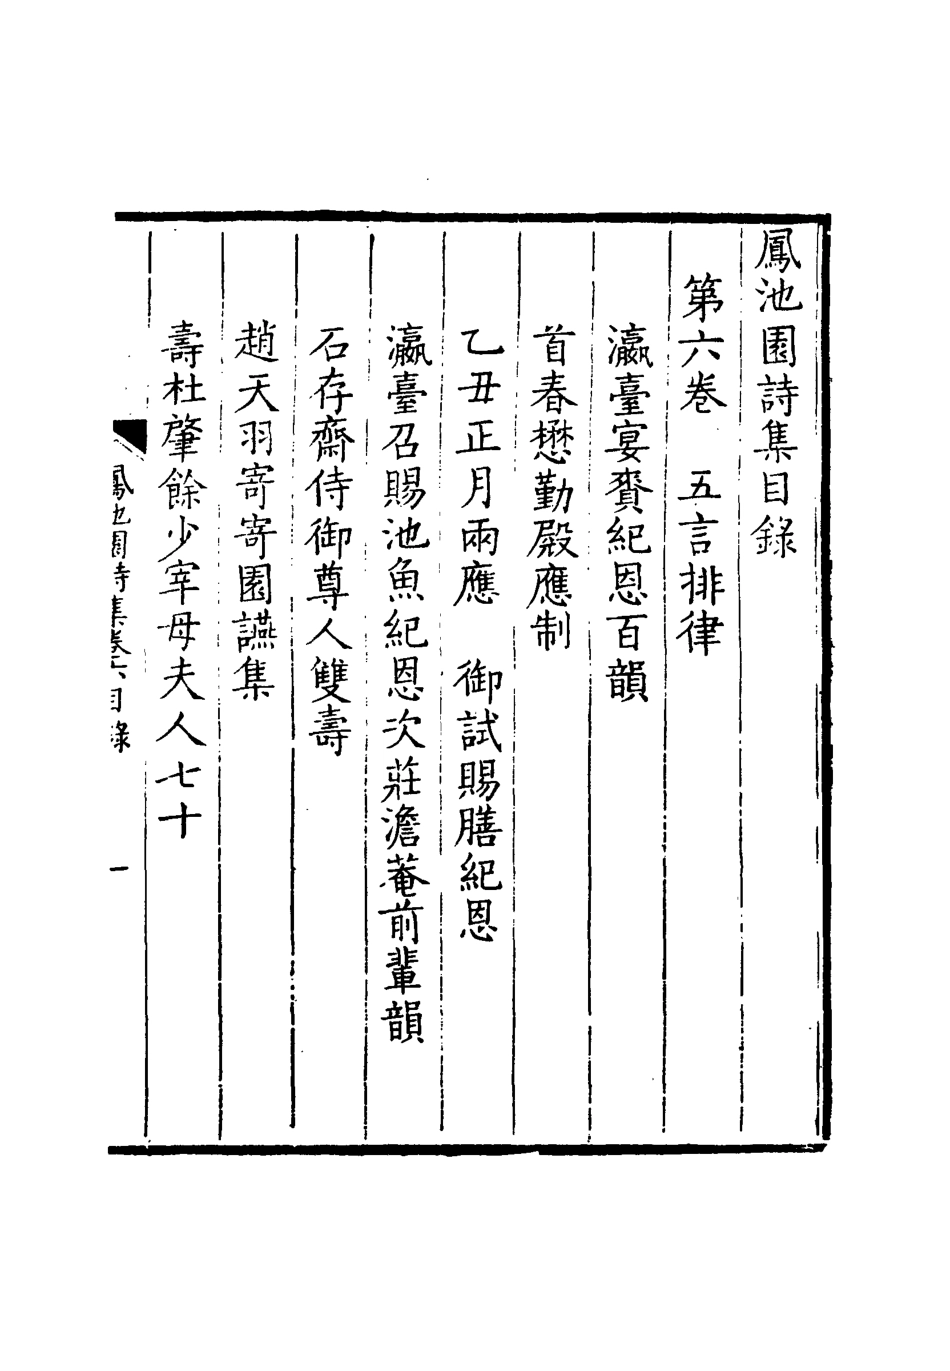 鳳池園詩集目錄
第六卷　五言排律
瀛臺宴賚紀恩百韻
首春懋勤殿應制
乙丑正月兩應　御試賜膳紀恩
瀛臺召賜池魚紀恩次莊澹菴前輩韻
石存齋侍御尊人雙壽
趙天羽寄寄園讌集
壽杜肇餘少宰母夫人七十
鳳池園詩集卷六目錄
一